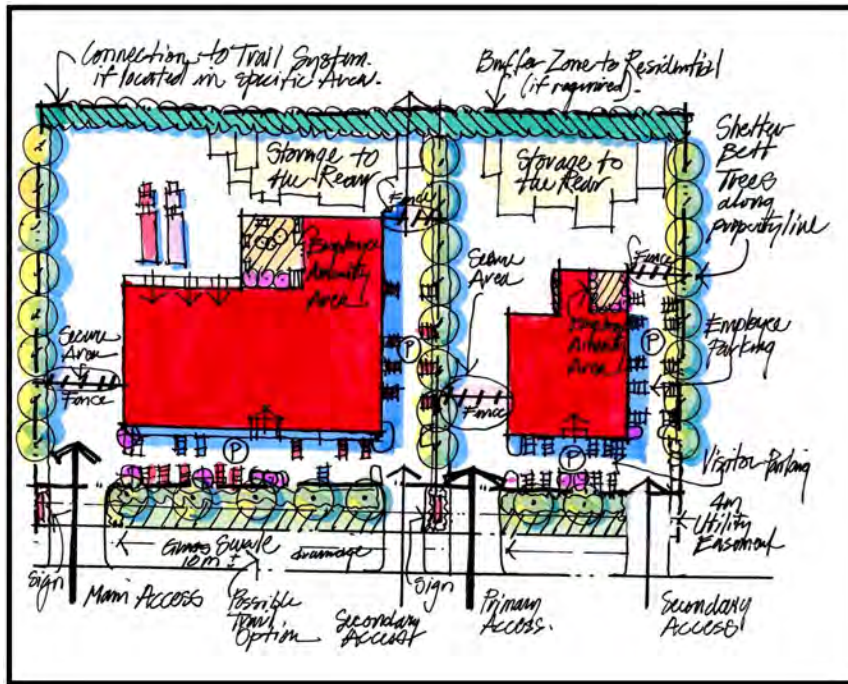 Connection to Trail System.
if located in specific Area.
Buffer Zone to Residential
(if required).
Shelter
Belt
Trees
along
property line
Storage to
the Rear
Storage to
the Rear
Fence
Employee
Amenity
Area
Secure
Area
Fence
Employee
Amenity
Area
Employee
Parking
Secure
Area
Fence
Fence
P
P
P
P
Visitor Parking
4m
Utility
Easement
Grass Swale
10m ±
drainage
Sign
Main Access
Possible
Trail
Option
Secondary
Access
Sign
Primary
Access.
Secondary
Access